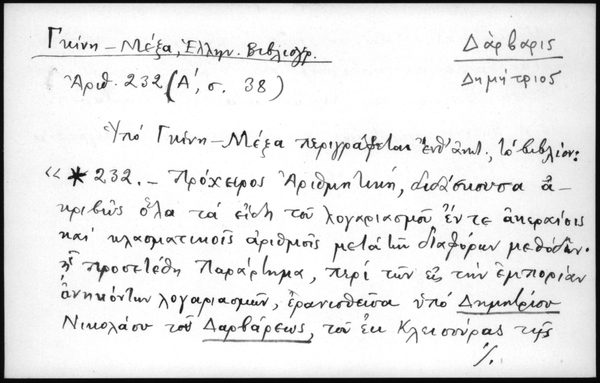 Γκίνη – Μέξα, Ἑλλην. Βιβλιογρ.
Δάρβαρις
Ἀριθ. 232 (Α΄, σ. 38)
Δημήτριος
Ὑπό Γκίνη – Μέξα περιγράφεται ἐνθ' ἀνωτ., τό βιβλίον:
« * 232. – Πρόχειρος Ἀριθμητική, διδάσκουσα ἀ-
κριβῶς ὅλα τά εἴδη τοῦ λογαριασμοῦ ἔν τε ἀκεραίοις
καί κλασματικοῖς ἀριθμοῖς μετά τῶν διαφόρων μεθόδων·
ᾗ προσετέθη Παράρτημα, περί τῶν εἰς τήν ἐμπορίαν
ἀνηκόντων λογαριασμῶν, ἐρανισθεῖσα ὑπό Δημητρίου
Νικολάου τοῦ Δαρβάρεως, τοῦ ἐκ Κλεισούρας τῆς
./.